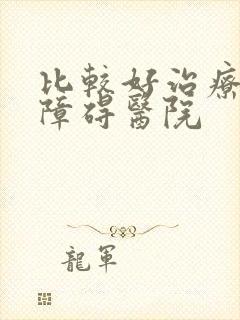 比較好治療
障碍醫院
龍軍